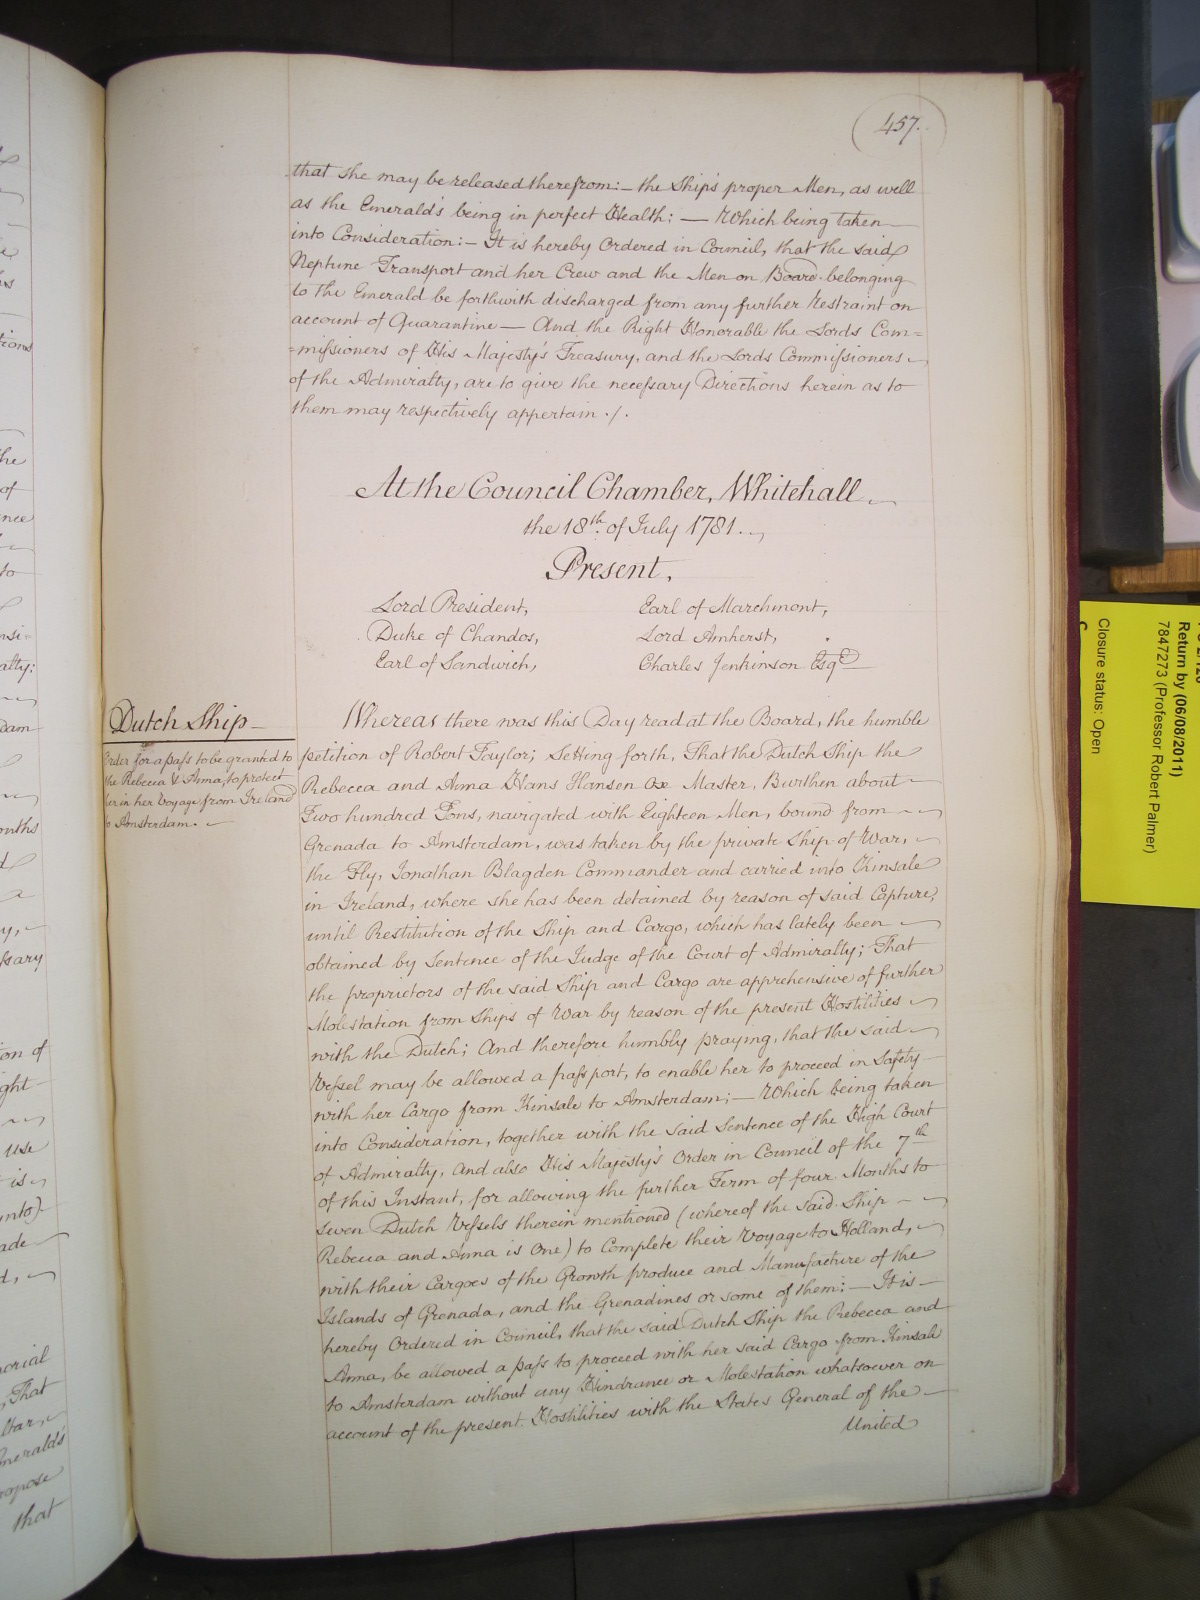 457.
that she may be released therefrom:— the Ship's proper Men, as well
as the Emerald's being in perfect Health: — Which being taken
into Consideration:— It is hereby Ordered in Council, that the said
Neptune Transport and her Crew and the Men on Board belonging
to the Emerald be forthwith discharged from any further Restraint on
account of Quarantine — And the Right Honorable the Lords Com=
=missioners of His Majesty's Treasury, and the Lords Commissioners
of the Admiralty, are to give the necessary Directions herein as to
them may respectively appertain ./.
At the Council Chamber, Whitehall
the 18th. of July 1781.
Present,
Lord President,
Duke of Chandos,
Earl of Sandwich,
Earl of Marchmont,
Lord Amherst,
Charles Jenkinson Esqe
Dutch Ship
Order for a pass to be granted to
the Rebecca & Anna, to protect
her in her Voyage from Ireland
to Amsterdam.
Whereas there was this Day read at the Board, the humble
petition of Robert Taylor; Setting forth, That the Dutch Ship the
Rebecca and Anna Hans Hansen Master, Burthen about
Two hundred Tons, navigated with Eighteen Men, bound from
Grenada to Amsterdam, was taken by the private Ship of War,
the Fly, Jonathan Blagden Commander and carried into Kinsale
in Ireland, where she has been detained by reason of said Capture,
until Restitution of the Ship and Cargo, which has lately been
obtained by Sentence of the Judge of the Court of Admiralty; That
the proprietors of the said Ship and Cargo are apprehensive of further
Molestation from Ships of War by reason of the present Hostilities
with the Dutch; And therefore humbly praying, that the said
Vessel may be allowed a passport, to enable her to proceed in Safety
with her Cargo from Kinsale to Amsterdam;— Which being taken
into Consideration, together with the said Sentence of the High Court
of Admiralty, and also His Majesty's Order in Council of the 7th
of this Instant, for allowing the further Term of four Months to
seven Dutch Vessels therein mentioned (whereof the said Ship
Rebecca and Anna is One) to Complete their Voyage to Holland,
with their Cargoes of the Growth produce and Manufacture of the
Islands of Grenada, and the Grenadines or some of them:— It is
hereby Ordered in Council, that the said Dutch Ship the Rebecca and
Anna, be allowed a pass to proceed with her said Cargo from Kinsale
to Amsterdam without any Hindrance or Molestation whatsoever on
account of the present Hostilities with the States General of the
United
Return by (06/08/2011)
7847273 (Professor Robert Palmer)
Closure status: Open